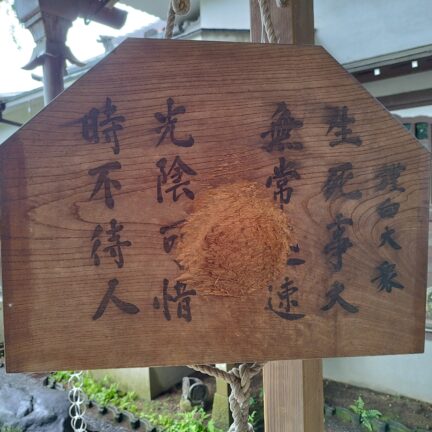 謹白大衆
生死事大
無常 速
光陰可惜
時不待人